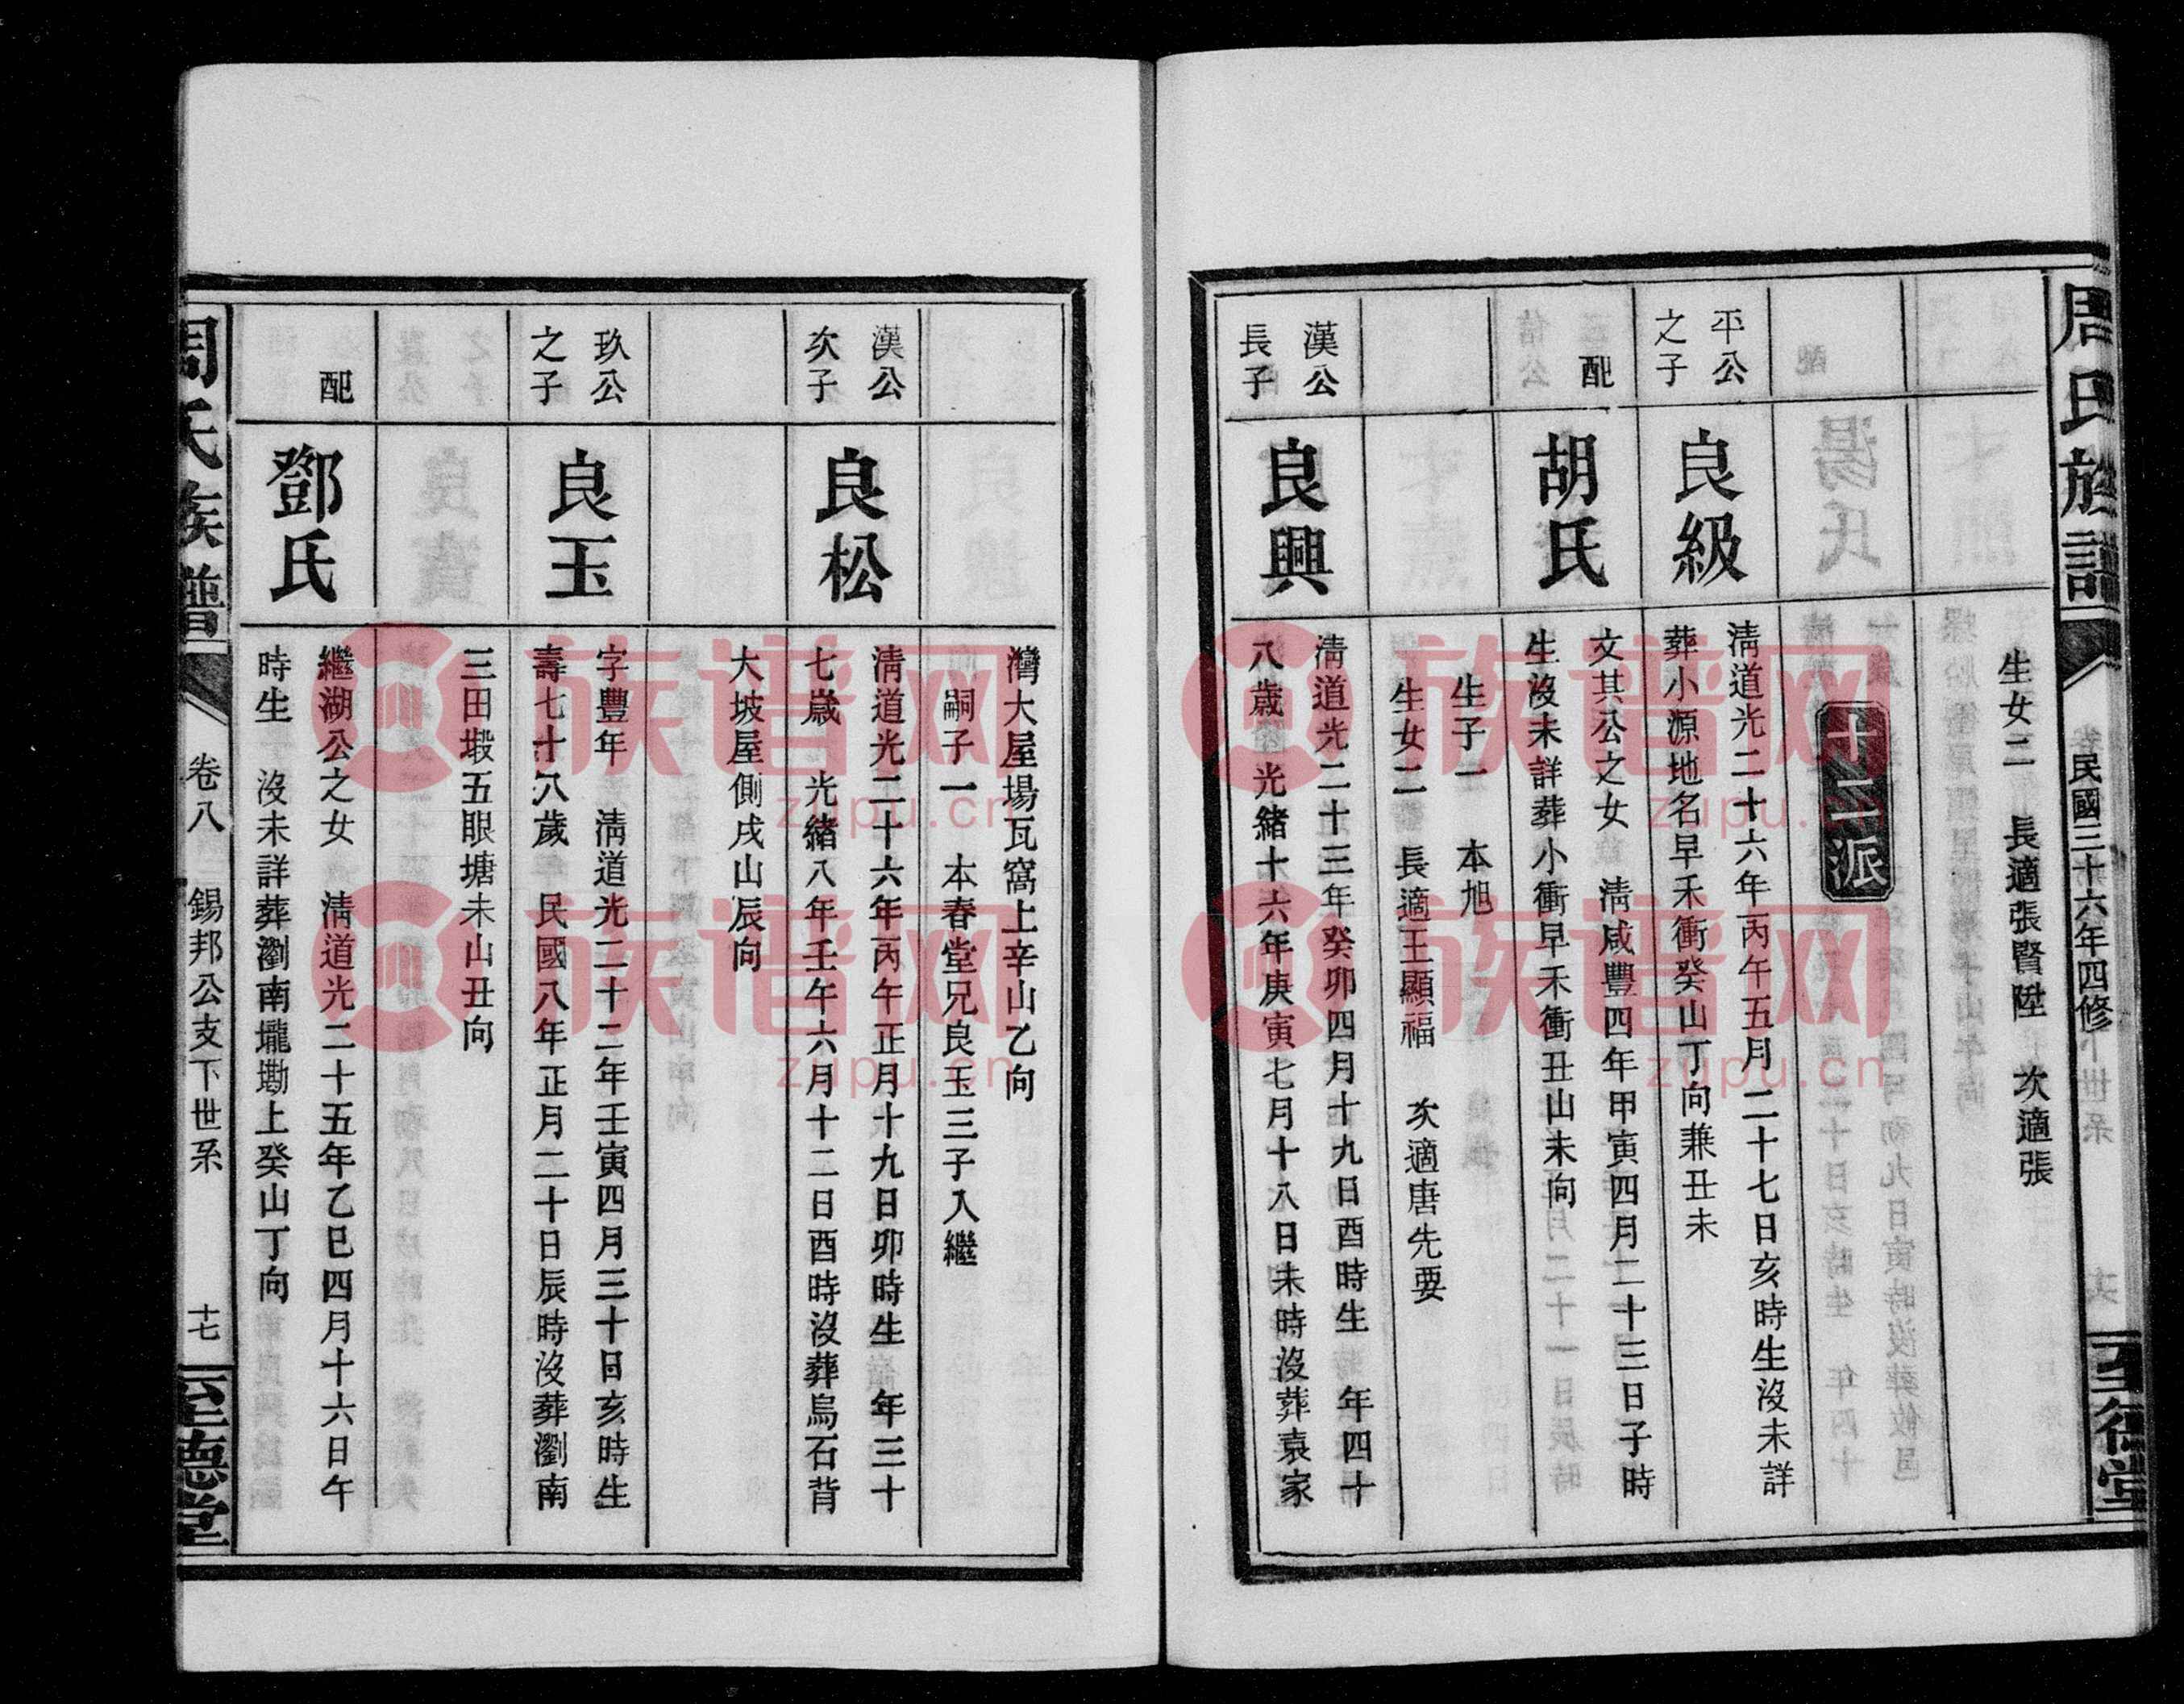 周氏族譜
民國三十六年四修
至德堂
生女二　長適張賢陞　次適張
十二派
平公之子
良級
清道光二十六年丙午五月二十七日亥時生沒未詳
葬小源地名早禾衝癸山丁向兼丑未
配
胡氏
文其公之女　清咸豐四年甲寅四月二十三日子時
生沒未詳葬小衝早禾衝丑山未向
生子一　本旭
生女二　長適王顯福　次適唐先要
漢公長子
良興
清道光二十三年癸卯四月十九日酉時生　年四十
八歲　光緒十六年庚寅七月十八日未時沒葬袁家
灣大屋場瓦窩上辛山乙向
嗣子一　本春堂兄良玉三子入繼
漢公次子
良松
清道光二十六年丙午正月十九日卯時生　年三十
七歲　光緒八年壬午六月十二日酉時沒葬烏石背
大坡屋側戌山辰向
玖公之子
良玉
字豐年　清道光二十二年壬寅四月三十日亥時生
壽七十八歲　民國八年正月二十日辰時沒葬瀏南
三田塅五眼塘未山丑向
配
鄧氏
繼湖公之女　清道光二十五年乙巳四月十六日午
時生　沒未詳葬瀏南壠墈上癸山丁向
周氏族譜
卷八　錫邦公支下世系
十七
至德堂
族谱网
zupu.cn
族谱网
zupu.cn
族谱网
zupu.cn
族谱网
zupu.cn